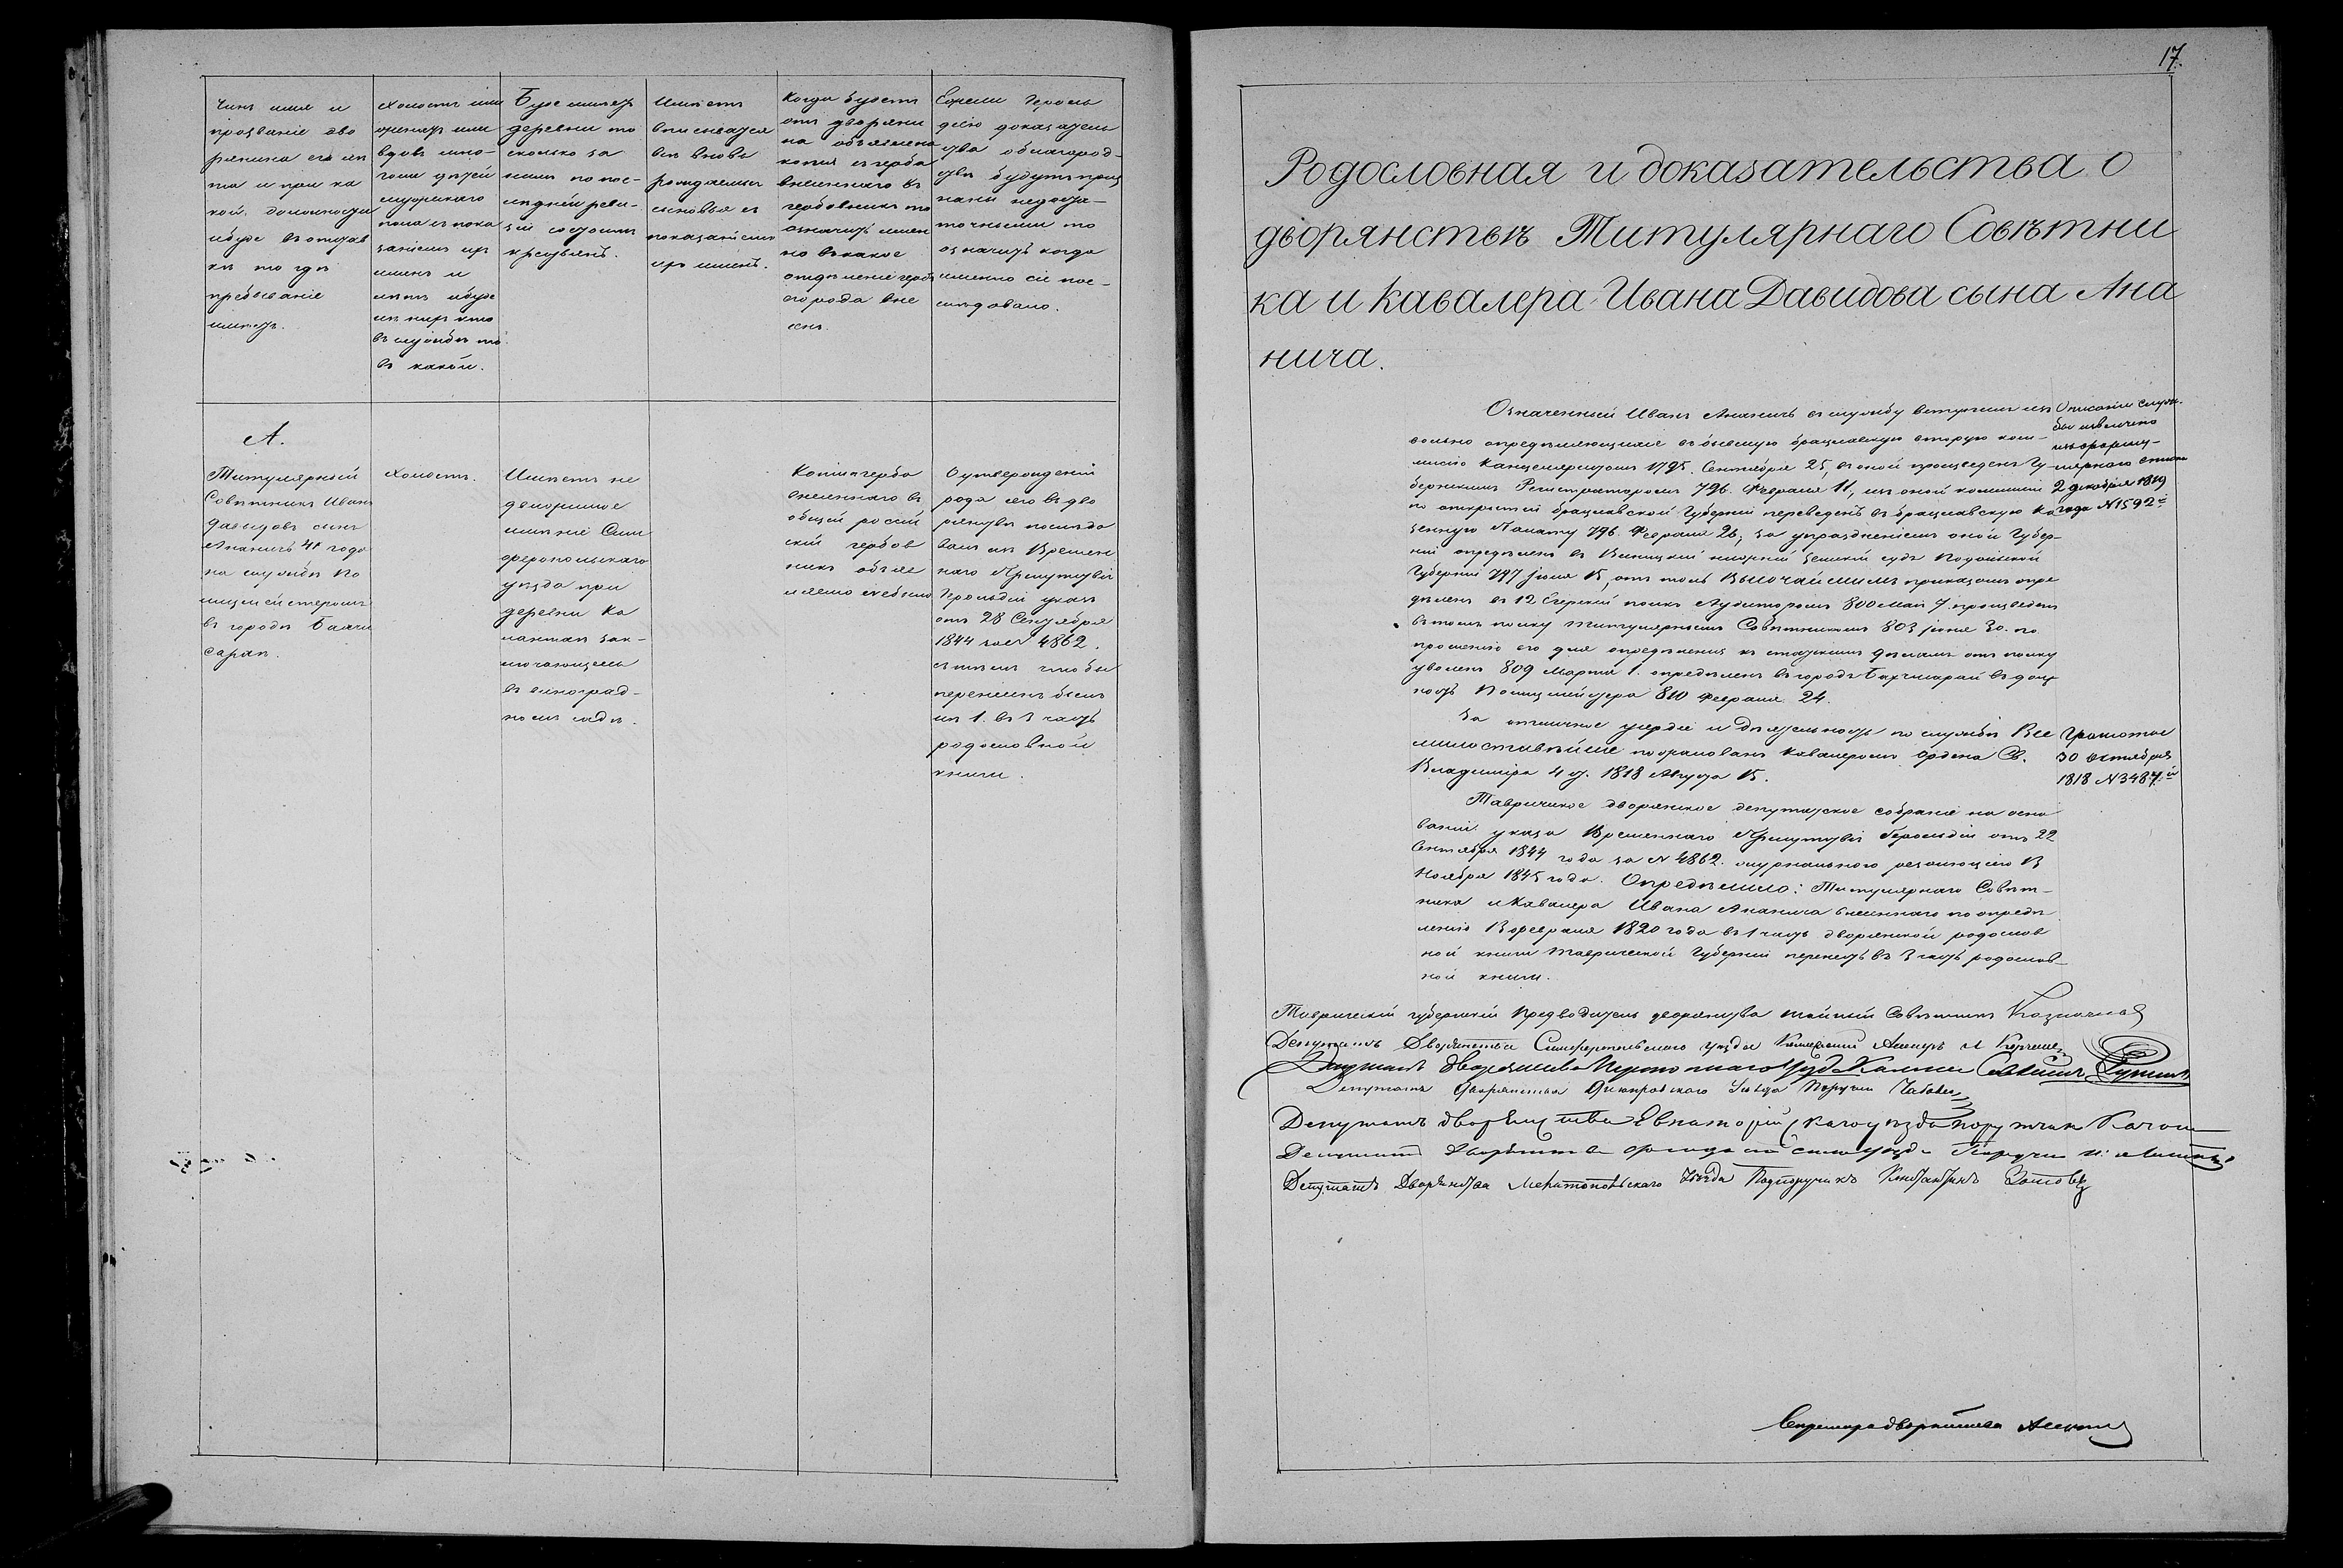 17.
Чинъ имя и
прозваніе дво
рянина его лѣ
та и при ка
кой должности
ибуде въ отстав
кѣ то гдѣ
пребываніе
имѣетъ.
Холостъ или
женатъ или
вдовъ мно-
голи дѣтей
мужескаго
пола съ пока
заніемъ ихъ
именъ и
лѣтъ ибуде
изъ нихъ кто
въ службѣ то
въ какой.
Буде имѣетъ
деревни то
сколько за
нимъ по пос-
лѣдней реви-
зіи состоитъ
крестьянъ.
Имѣетъ
вписыватся
всѣ вновь
рождаемые
сыновья съ
показаніемъ
ихъ именъ.
Когда будетъ
отъ дворяни
на объявлена
копія съ герба
внесеннаго въ
гербовникъ то
означить имен
но въ какое
отдѣленіе гербъ
его рода вне
сенъ.
Ежели Героль
діею доказатель
ства облагород-
ствѣ будутъ приз
наны недоста-
точными то
означить когда
именно сіе пос-
лѣдовало.
А.
Титулярный
Совѣтникъ Иванъ
Давыдовъ сынъ
Ананичъ 41 года
на службѣ По
лицмейстеромъ
въ городѣ Бахчи
сараѣ.
Холостъ.
Имѣетъ не
движимое
имѣніе Сим
феропольскаго
уѣзда при
деревни Ка
зак-
лючающееся
въ виноград-
номъ садѣ.
Копія герба
внесеннаго въ
общій россій
скій гербов
никъ объяв
ляемо не было.
О утвержденіи
рода сего въ дво
рянствѣ послѣдо
валъ изъ Времен
наго Присутствія
Герольдіи указъ
отъ 28 Сентября
1844 за № 4862.
съ тѣмъ чтобы
перенесенъ былъ
изъ 1. въ 3 часть
родословной
книги.
Родословная и доказательства о
дворянствѣ Титулярнаго Совѣтни
ка и кавалера Ивана Давидова сына Ана
нича.
Означенный Иванъ Ананичъ въ службу вступилъ изъ
вольно опредѣляющихся въ бывшую брацлавскую вторую ком-
мисію Канцеляристомъ 1795. Сентября 25, въ оной произведенъ Гу-
бернскимъ Регистраторомъ 796. Февраля 11, изъ оной коммисіи
по открытіи брацлавской Губерніи переведенъ въ брацлавскую ка
зенную Палату 796. Февраля 26; за упраздненіемъ оной Губер-
ніи опредѣленъ въ Виницкій нижній земскій судъ Подольской
Губерніи 797 Іюля 15, отъ толь Высочайшимъ приказомъ опре
дѣленъ въ 12 Егерскій полкъ Аудиторомъ 800 Мая 7. произведенъ
въ томъ полку титулярнымъ Совѣтникомъ 803 Іюня 30. по
прошенію его для опредѣленія къ статскимъ дѣламъ отъ полку
уволенъ 809 Марта 1. опредѣленъ въ городъ Бахчисарай въ долж
ность Полицмейстера 810 Февраля 24.
Описаніе служ-
бы извлечено
изъ форму-
лярнаго списка
2 декабря 1819
года №1592й
За отличное усердіе и дѣятельность по службѣ Все
милостивѣйше пожалованъ кавалеромъ ордена Св.
Владиміра 4 ст. 1818 Августа 15.
Грамотою
30 октября
1818 №3487й
Таврическое дворянское депутатское собраніе на осно
ваніи указа Временнаго Присутствія Герольдіи отъ 22
Сентября 1844 года за № 4862. журнальною резолюціею 13
Ноября 1845 года. Опредѣлило: Титулярнаго Совѣт-
ника и Кавалера Ивана Ананича внесеннаго по опредѣ
ленію 13 февраля 1820 года въ 1 часть дворянской родослов
ной книги Таврической Губерніи перенесть въ 3 часть родослов-
ной книги.
Таврическій губернскій Предводитель дворянства тайный Совѣтникъ Казначеев
Депутатъ Дворянства Симферопольскаго уѣзда
Депутатъ дворянства
Депутатъ Дворянства Днѣпровскаго Уѣзда Поручик
Депутатъ дворянства Евпаторійскаго уѣзда поручикъ
Депутатъ Дворянства Ѳеодосійскаго уѣзда Поручик
Депутатъ Дворянства Мелитопольскаго Уѣзда Подпоручикъ Константинъ
Секретарь дворянства